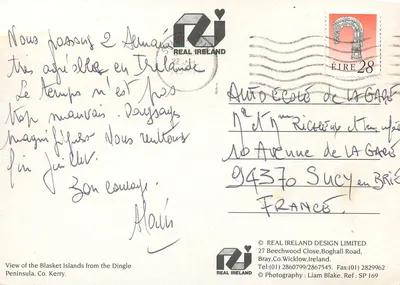 Nous passons 2 semaines
très agréables en Irlande
Le temps n'est pas
trop mauvais. Paysages
magnifiques. Nous rentrons
fin juillet.
Bon courage.
REAL IRELAND
ÉIRE 28
AUTO ECOLE DE LA GARE
Mr et Mme
10 Avenue de LA GARE
94370 SUCY en BRIE
FRANCE
View of the Blasket Islands from the Dingle
Peninsula, Co. Kerry.
REAL IRELAND
© REAL IRELAND DESIGN LIMITED
27 Beechwood Close,Boghall Road,
Bray,Co.Wicklow,Ireland.
Tel:(01) 2860799/2867545. Fax:(01) 2829962
© Photography : Liam Blake. Ref : SP 169